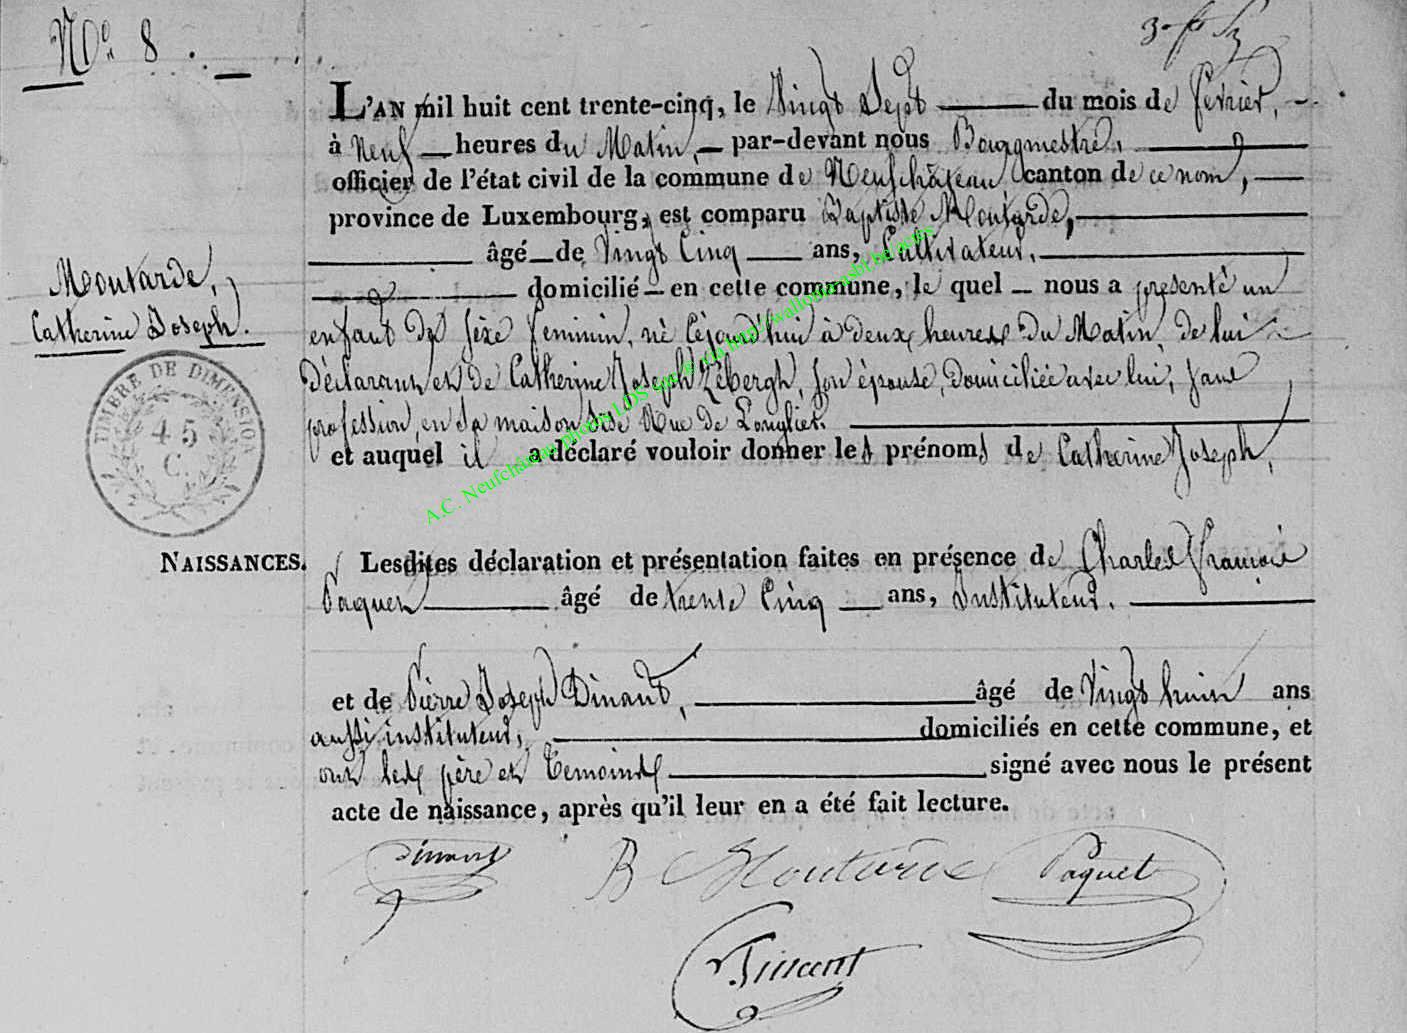 No. 8
L'AN mil huit cent trente-cinq, le Vingt Sept du mois de février,
à Neuf heures du Matin, par-devant nous Bourgmestre,
officier de l'état civil de la commune de Neufchâteau, canton de ce nom,
province de Luxembourg, est comparu Baptiste Moutarde,
âgé de Vingt Cinq ans, Cultivateur,
domicilié en cette commune, le quel nous a présenté un
Moutarde,
Catherine Joseph.
enfant du sèxe feminin, né cejourd'hui à deux heures du Matin, de lui
déclarant et de Catherine Joseph Zébergh, son épouse, domiciliée avec lui, sans
profession, en sa maison sise Rue de Longlier.
et auquel il a déclaré vouloir donner les prénoms de Catherine Joseph,
TIMBRE DE DIMENSION
45
C.
A.C. Neufchâteau photos LDS sur © via http://wallonia.asbl.be/actes
NAISSANCES. Lesdites déclaration et présentation faites en présence de Charles François
Paquet âgé de trente Cinq ans, Instituteur,
et de Pierre Joseph Dinant, âgé de Vingt huit ans
aussi instituteur, domiciliés en cette commune, et
ont les père et Temoins signé avec nous le présent
acte de naissance, après qu'il leur en a été fait lecture.
Dinant B Moutarde Paquet